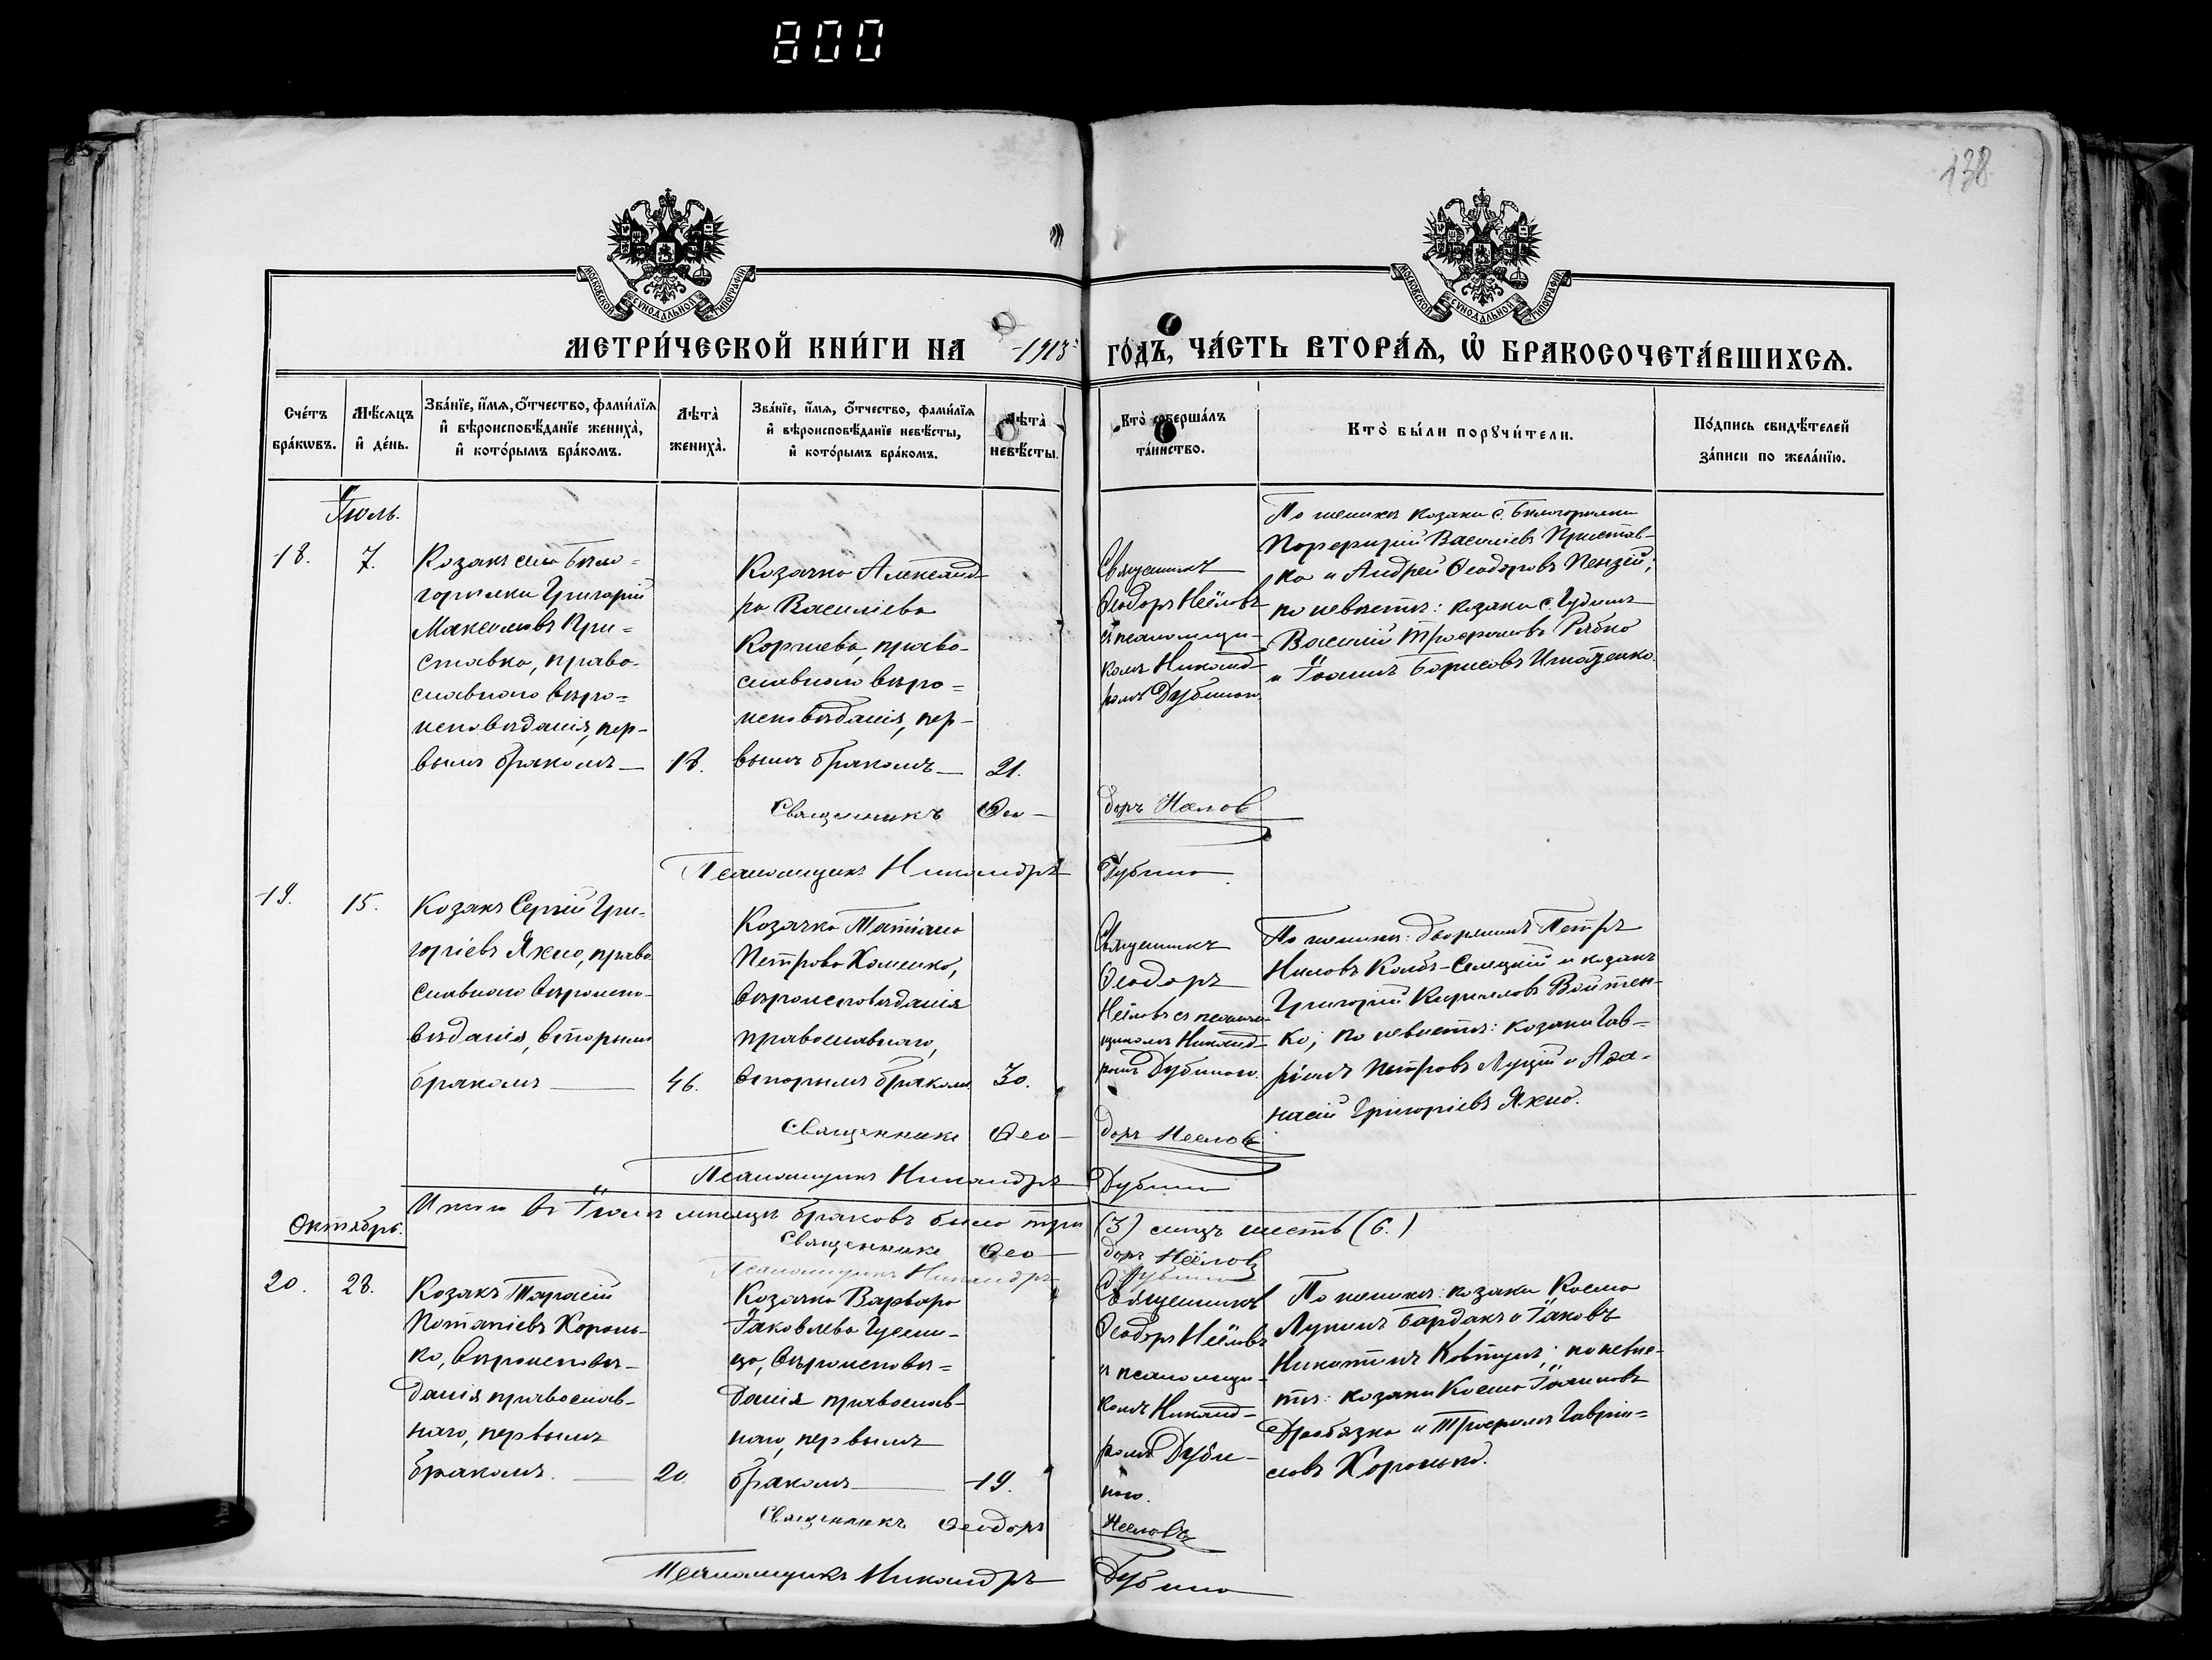 800
138
МОСКОВСКОЙ СѴНОДАЛЬНОЙ ТИПОГРАФІИ
МОСКОВСКОЙ СѴНОДАЛЬНОЙ ТИПОГРАФІИ
МЕТРИ́ЧЕСКОЙ КНИ́ГИ НА 1913 ГО́ДЪ, ЧА́СТЬ ВТОРА́Я, Ѡ҆ БРАКОСОЧЕТА́ВШИХСЯ.
Сче́тъ бра́кѡвъ.
Мѣ́сяцъ и҆ де́нь.
Зва́нїе, и҆́мя, ѻ҆́тчество, фами́лїя и҆ вѣроисповѣ́данїе жениха̀, и҆ кото́рымъ бра́комъ.
Лѣта̀ жениха̀.
Зва́нїе, и҆́мя, ѻ҆́тчество, фами́лїя и҆ вѣроисповѣ́данїе невѣ́сты, и҆ кото́рымъ бра́комъ.
Лѣта̀ невѣ́сты.
Кто̀ соверша́лъ та́инство.
Кто̀ бы́ли порꙋчи́тели.
По́дпись свидѣ́телей за́писи по жела́нїю.
Іюль.
18.
7.
Козакъ села Било=
горилки Григорій
Максимовъ При=
ставка, право-
славнаго вѣро=
исповѣданія, пер-
вымъ бракомъ
18.
Козачка Александ-
ра Василіева
Корнева, право-
славнаго вѣро=
исповѣданія, пер-
вымъ бракомъ
21.
Священникъ
Ѳеодоръ Нѣловъ
съ псаломщи-
комъ Никанд-
ромъ Дубиною.
По женихѣ козаки с. Билогорилки
Порфирій Василіевъ Пристав-
ка и Андрей Ѳеодоровъ Пензій;
по невѣстѣ: козаки с.
Василій Трофимовъ Рябко
и Іоаннъ Борисовъ Игнатенко.
Священникъ Ѳео-
доръ Нѣлов
Псаломщикъ Никандръ Дубина
19.
15.
Козакъ Сергій Гри-
горіевъ Яхно, право
славнаго вѣроиспо-
вѣданія, вторымъ
бракомъ
46.
Козачка Татіана
Петрова Хоменко,
вѣроисповѣданія
православнаго,
вторымъ бракомъ
30.
Священникъ
Ѳеодоръ
Нѣловъ съ псалом-
щикомъ Никанд-
ромъ Дубиною.
По женихѣ: дворянинъ Петръ
Ниловъ -Селецкій и козакъ
Григорій Кирилловъ Войтен-
ко; по невѣстѣ: козаки Гав-
ріилъ Петровъ Луцій и Аѳа-
насій Григоріевъ Яхно.
Священникъ Ѳео-
доръ Нѣлов
Псаломщикъ Никандръ Дубина
Итого въ Іюлѣ мѣсяцѣ браковъ было три (3) лицъ шесть (6.)
Октябрь.
Священникъ Ѳео-
доръ Нѣлов
Псаломщикъ Никандръ Дубина
20.
28.
Козакъ Тарасій
Потапіевъ Хороль-
ко, вѣроисповѣ-
данія православ-
наго, первымъ
бракомъ.
20.
Козачка Варвара
Іаковлева
вѣроисповѣ=
данія православ-
наго, первымъ
бракомъ
19.
Священникъ
Ѳеодоръ Нѣловъ
съ псаломщи-
комъ Никанд-
ромъ Дуби-
ною.
По женихѣ: козаки Косма
Лукинъ Бардакъ и Іаковъ
Никитинъ Ковтунъ; по невѣс-
тѣ: козаки Косма Іоанновъ
Дробязко и Трофимъ Гаврии=
ловъ Хоролько.
Священникъ Ѳеодоръ Нѣловъ
Псаломщикъ Никандръ Дубина